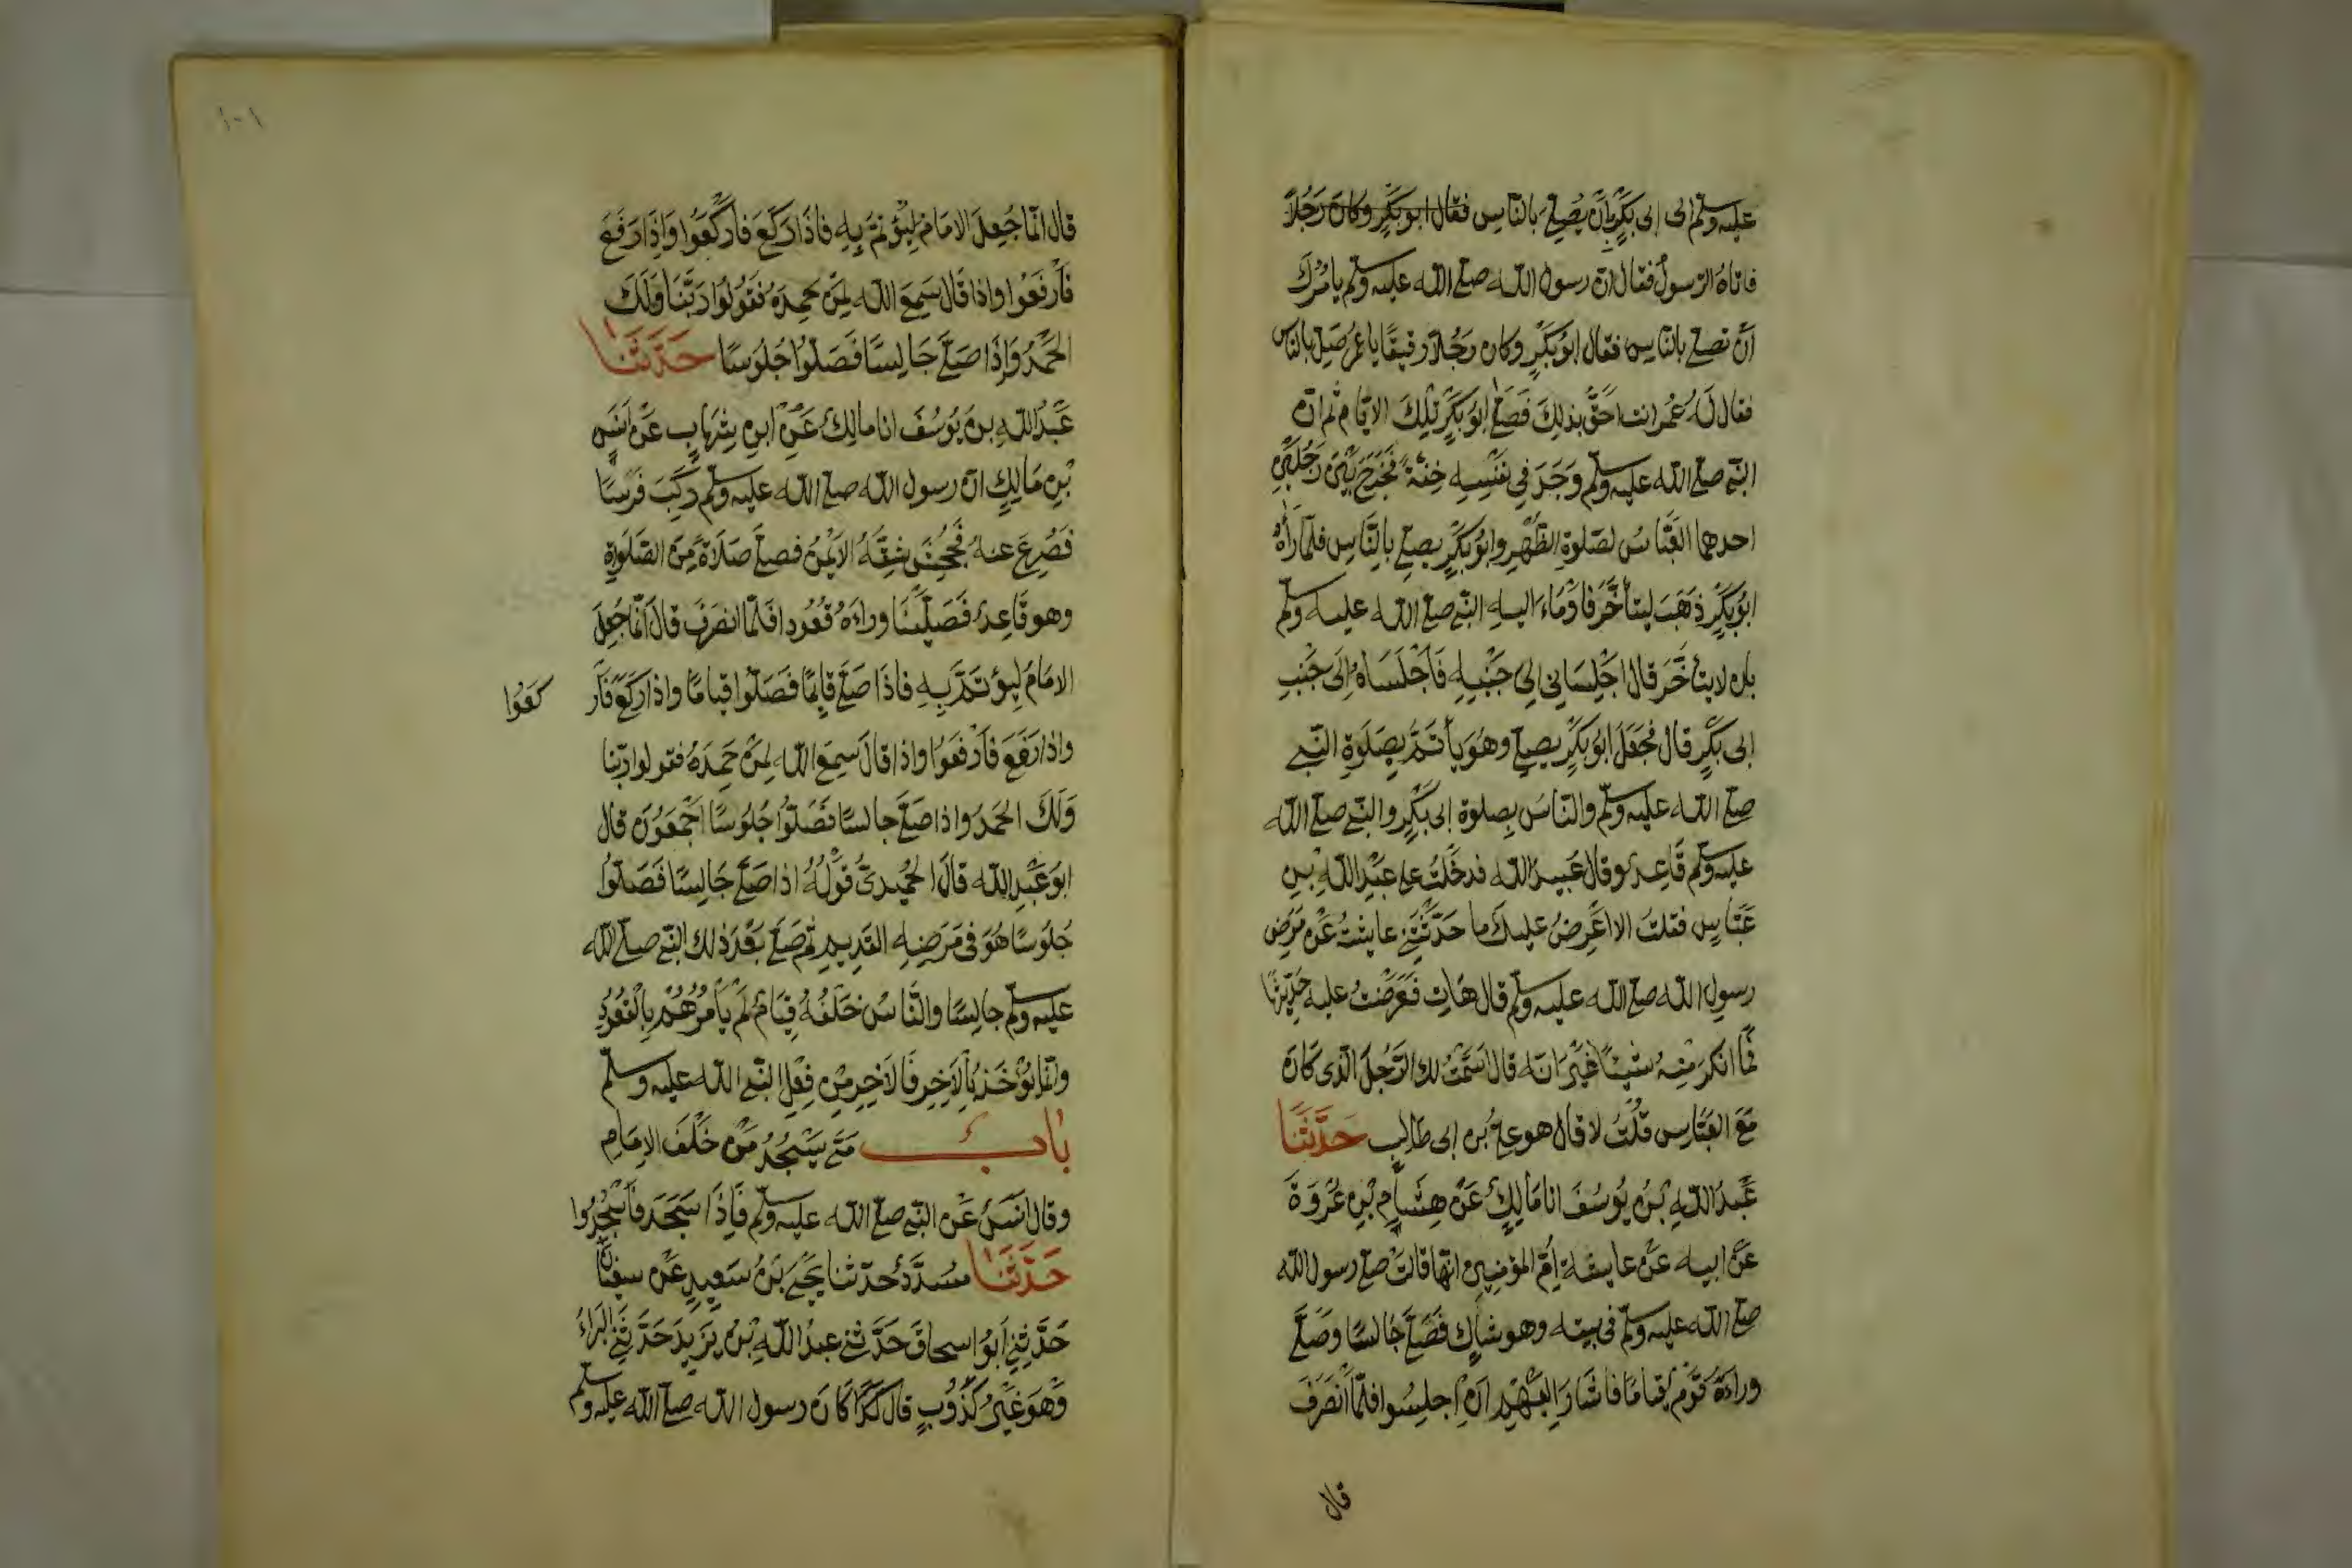 عليه وسلم الى ابى بَكْرٍ بِاَنْ يُصَلِّىَ بالنّاسِ فقال ابو بَكْرٍ وكانَ رَجُلاً
فاتاهُ الرّسولُ فقال انّ رسول الله صلى الله عليه وسلم يامُرُكَ
اَنْ تصلى بالنّاسِ فقال ابُو بَكْرٍ وكان رَجُلاً رقيقًا يا عُمرُ صَلِّ بالنّاس
فقال لَهُ عُمر انت احَقُّ بذلكَ فَصَلَّى ابو بَكْرٍ تِلكَ الايّام ثم انّ
النّبىَّ صلى الله عليه وسلم وَجَدَ فى نَفْسِهِ خِفَّةً فَخَرَجَ بَيْنَ رَجُلَيْنِ
احدهما العَبّاسُ لصَلوةِ الظُّهْرِ وابُو بَكْرٍ يصلى بالنَّاسِ فلمّا رَأهُ
ابُو بَكْرٍ ذَهَبَ ليتأخّرَ فاَوْمَاءَ اليهِ النّبى صلى الله عليه وسلم
بان لا يتأخَّرَ قال اجْلِسَانى الى جَنْبِهِ فَاَجْلَسَاهُ اِلَى جَنْبِ
ابى بَكْرٍ قال فجَعَلَ ابُو بَكْرٍ يصلى وهُوَ يأتَمُّ بِصَلَوةِ النّبى
صلى الله عليه وسلم والنّاسُ بِصلوة ابى بَكْرٍ والنّبى صلى الله
عليه وسلم قَاعِدٌ وقال عُبيدُ الله فدخَلْتُ على عبْدِ اللهِ بن
عَبّاسٍ فقلتُ الا اَعْرِضُ عليك ما حَدّثَتْنى عايشةُ عَنْ مَرَضِ
رسولِ الله صلى الله عليه وسلم قال هَاتِ فَعَرَضْتُ عليه حَدِيْثَهَا
فَمَا انكرَ مِنْهُ شَيْئًا غَيْرَ انّه قال اَسَمَّتْ لك الرَّجُلَ الّذى كَانَ
مَعَ العبّاسِ قُلْتُ لا قال هو علىُّ بن ابى طالبٍ حَدَّثَنَا
عَبْدُ اللهِ بْنُ يُوسُفَ انا مَالِكٌ عَنْ هِشَامِ بْنِ عُرْوَةَ
عَنْ ابيه عَنْ عايشة اُمِّ المؤمنين انّها قالتْ صلى رسول الله
صلى الله عليه وسلم فى بيته وهو شاكٍ فَصَلَّى جَالسًا وصَلَّى
وراءَهُ قَوْمٌ قيامًا فاَشَارَ اِلَيْهِمْ اَنْ اِجلِسُوا فلمّا انْصَرَفَ
قال
١٠١
قال انّما جُعِلَ الامَامُ لِيُؤْتَمَّ بِهِ فاذَا رَكَعَ فَارْكَعُوا وَاِذَا رَفَعَ
فاَرْفَعُوا واذا قَال سَمِعَ الله لِمَنْ حَمِدَهُ فَقُولُوا رَبَّنَا وَلَكَ
الحَمْدُ وَاِذَا صَلَّى جَالِسًا فَصَلّوا جُلُوسًا حَدَّثَنَا
عَبْدُ اللهِ بن يُوسُفَ انا مالكٌ عَنْ ابنِ شِهَابٍ عَنْ اَنَسِ
بْنِ مَالِكٍ انّ رسول الله صلى الله عليه وسلم رَكِبَ فَرَسًا
فَصُرِعَ عنهُ فَجُحِشَ شِقّهُ الايْمَنُ فصلى صَلاةً مِنَ الصَّلَوَاةِ
وهو قَاعِدٌ فَصَلَّيْنَا وراءَهُ قُعُودا فَلمّا انصَرَفَ قال انّما جُعِلَ
الامَامُ لِيؤتَمَّ بِهِ فاذَا صَلَّى قايِمًا فَصَلّوا قيامًا واذا رَكَعَ فَار كَعُوا
واذا رَفَعَ فَارْفَعُوا واذا قالَ سَمِعَ الله لِمَنْ حَمِدَهُ فقولوا ربّنا
وَلَكَ الحَمدُ واذا صَلَّى جالسًا فَصَلّوا جُلُوسًا اَجْمَعُونَ قال
ابو عَبْدِ الله قالَ الحُمَيدىُّ قَوْلُهُ اذا صَلَّى جَالِسًا فَصَلّوا
جُلوسًا هُوَ فى مَرَضِهِ القَديمِ ثمّ صَلّى بَعْدَ ذلك النّبى صلى الله
عليه وسلم جالِسًا والنَّاسُ خَلْفَهُ قِيَامٌ لَمْ يَأمُرْهُمْ بِالْقُعُودِ
وانّما يُؤخَذُ بِالآخِرِ فَالآخِرِ مِن فِعْلِ النّبى الله عليه وسلم
بابُ مَتَى يَسْجُدُ مَنْ خَلْفَ الاِمَامِ
وقال انَسٌ عَن النّبى صلى الله عليه وسلم فَاِذَا سَجَدَ فَاسْجُدُوا
حَدَّثَنَا مُسَدَّدٌ حدّثنا يَحْيَى بْنُ سَعِيدٍ عَنْ سفيٰنَ
حَدَّثَنِى اَبُو اسحاقَ حَدَّثَنى عبدُ اللهِ بْنُ يَزِيدَ حَدَّثَنِى البَرَاءُ
وَهُوَ غَيْرُ كَذُوبٍ قال كَانَ رسول الله صلى الله عليه وسلم